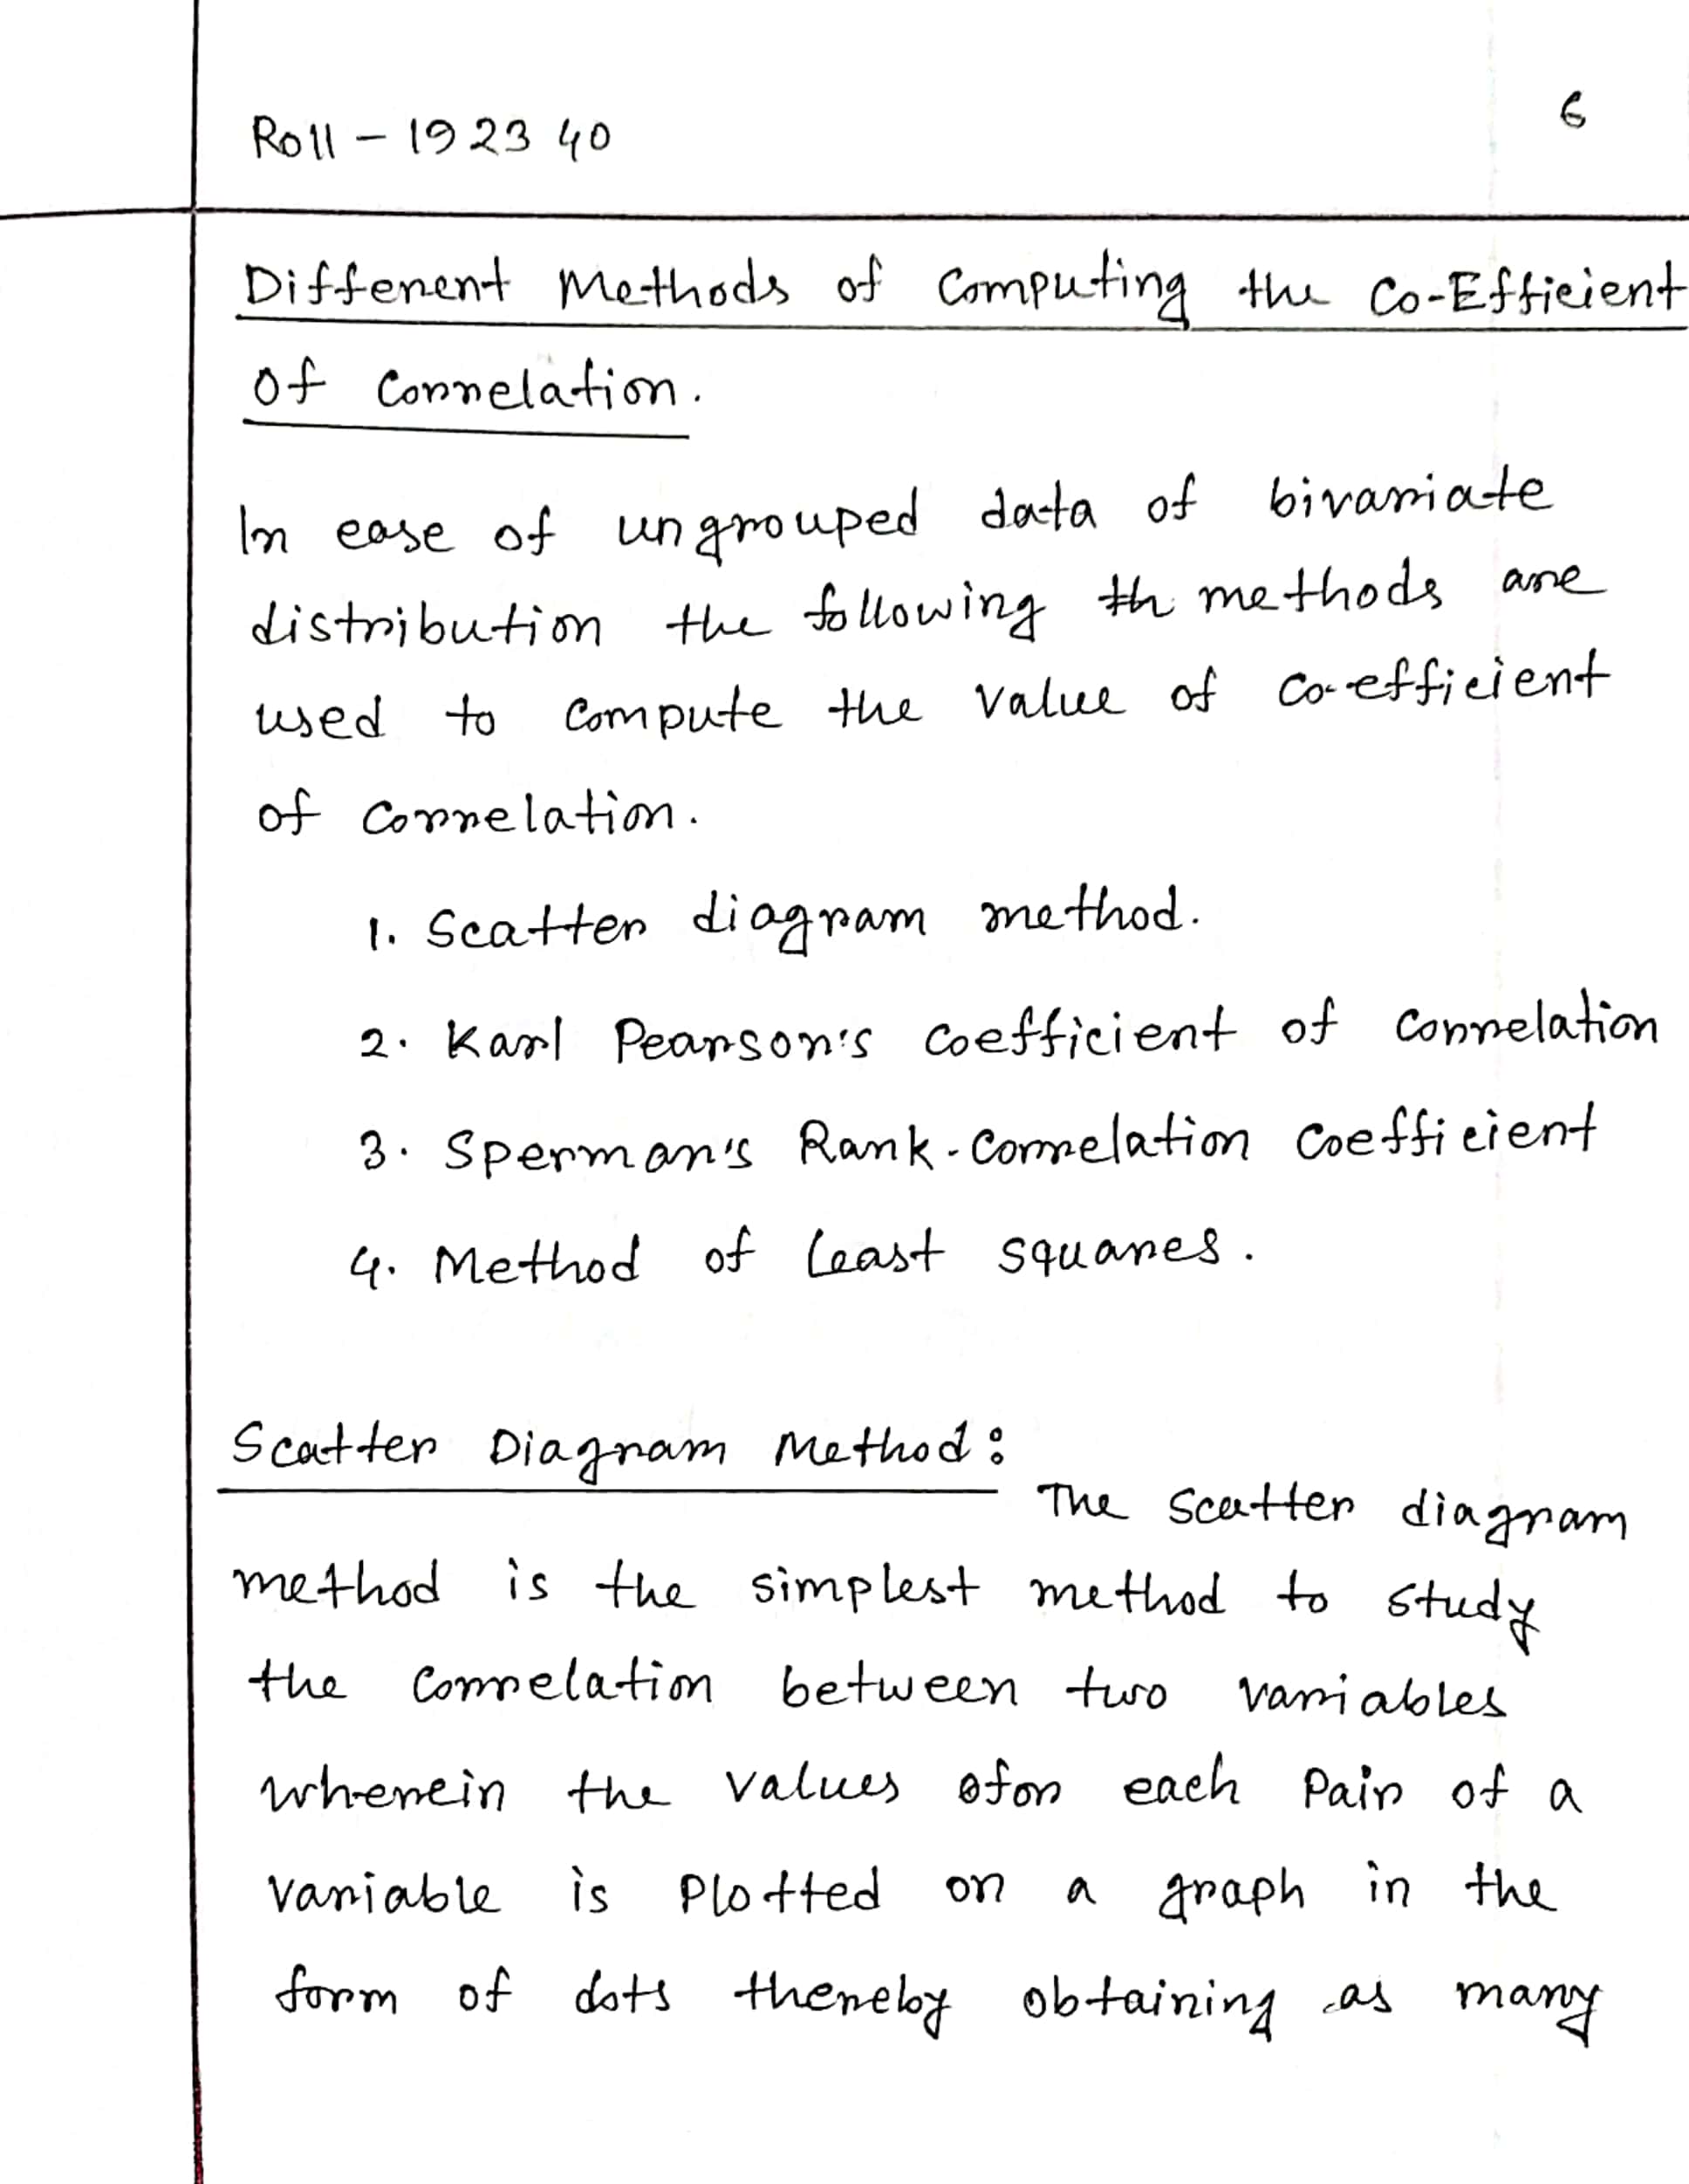 Roll - 192340
6
Different Methods of Computing the Co-Efficient
Of Correlation.
In case of ungrouped data of bivariate
distribution the following th methods are
used to compute the value of co-efficient
of correlation.
1. Scatter diagram method.
2. Karl Pearson's coefficient of correlation
3. Sperman's Rank-Correlation Coefficient
4. Method of least squares.
Scatter Diagram Method:
The scatter diagram
method is the simplest method to study
the correlation between two variables
wherein the values ofor each Pair of a
variable is Plotted on a graph in the
form of dots thereby obtaining as many